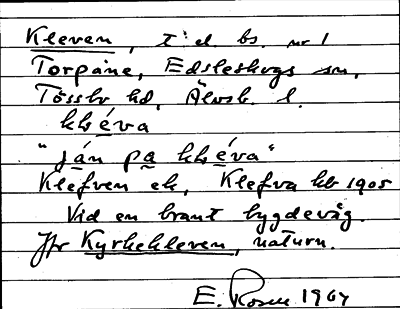 Kleven, t. el. bs. nr 1
Torpane, Edsleskogs sn,
Tössbo hd, Älvsb. l.
klèva
"ján pa klèva"
Klefven ek, Klefva kb 1905
Vid en brant bygdeväg.
Jfr Kyrkekleven, naturn.
E. Rosen 1967